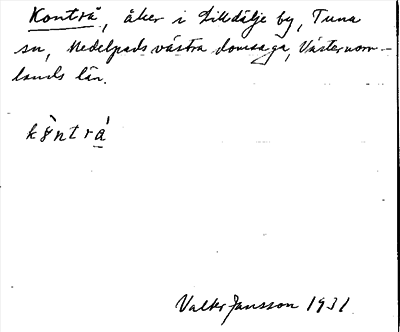 Konträ, åker i Lilldälje by, Tuna
sn, Medelpads västra domsaga, Västernorr-
lands län.
kö̀ntrá
Valter Jansson 1931